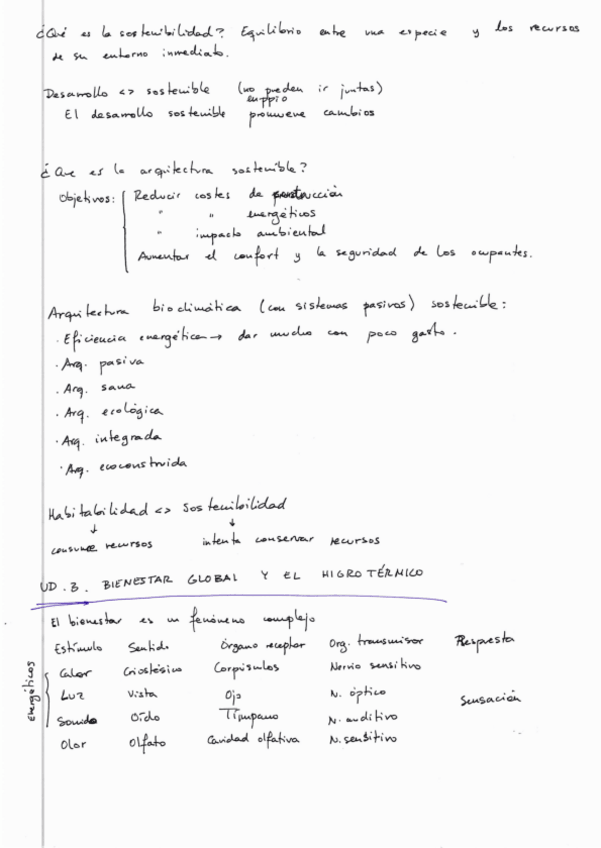 ¿Qué es la sostenibilidad? Equilibrio entre una especie y los recursos
de su entorno inmediato.
Desarrollo <> sostenible (no pueden ir juntas)
en ppio
El desarrollo sostenible promueve cambios
¿Que es la arquitectura sostenible?
Objetivos: Reducir costes de construcción
" " energéticos
" impacto ambiental
Aumentar el confort y la seguridad de los ocupantes.
Arquitectura bioclimática (con sistemas pasivos) sostenible:
· Eficiencia energética → dar mucho con poco gasto.
· Arq. pasiva
· Arq. sana
· Arq. ecológica
· Arq. integrada
· Arq. ecoconstruida
Habitabilidad <> Sostenibilidad
↓ ↓
consume recursos intenta conservar recursos
UD.3. BIENESTAR GLOBAL Y EL HIGROTÉRMICO
El bienestar es un fenómeno complejo
Estímulo Sentido Órgano receptor Org. transmisor Respuesta
Energéticos
Calor Criostésico Corpúsculos Nervio sensitivo
Luz Vista Ojo N. óptico Sensación
Sonido Oído Tímpano N. auditivo
Olor Olfato Cavidad olfativa N. sensitivo